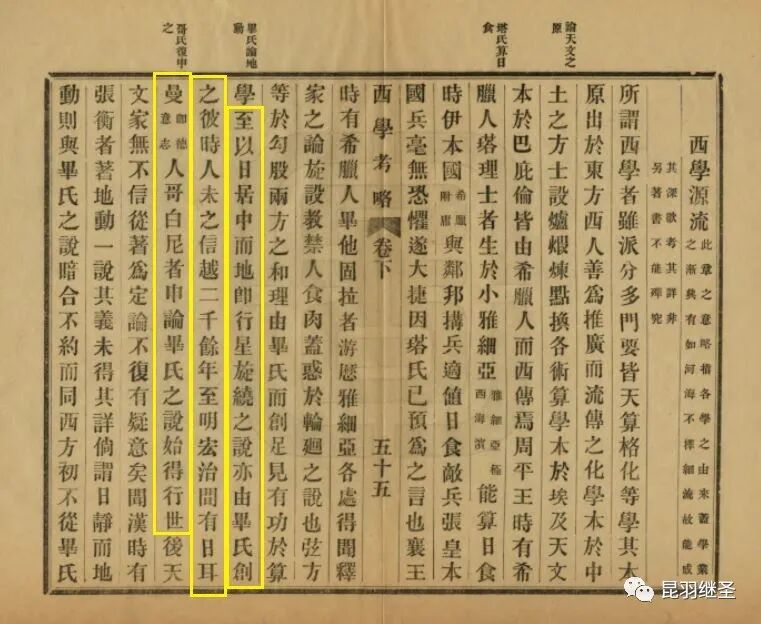 論天文之
原
塔氏算日
食
畢氏論地
動
哥氏復申
之
西學源流
此章之意略摘各學之由來蓋學業
之漸興有如河海不擇細流故能成
其深欲考其詳非
另著書不能殫究
所謂西學者雖派分多門要皆天算格化等學其大
原出於東方西人善爲推廣而流傳之化學本於中
土之方士設爐煅煉點換各術算學本於埃及天文
本於巴庇倫皆由希臘人而西傳焉周平王時有希
臘人塔理士者生於小雅細亞雅細亞極西海濱能算日食
時伊本國希臘附庸與鄰邦搆兵適値日食敵兵張皇本
國兵毫無恐懼遂大捷因塔氏已預爲之言也襄王
西學考略 卷下 五十五
時有希臘人畢他固拉者游歷雅細亞各處得聞釋
家之論旋設教禁人食肉蓋惑於輪廻之說也弦方
等於勾股兩方之和理由畢氏而創足見有功於算
學至以日居中而地卽行星旋繞之說亦由畢氏創
之彼時人未之信越二千餘年至明宏治間有日耳
曼卽德意志人哥白尼者申論畢氏之說始得行世後天
文家無不信從著爲定論不復有疑意矣聞漢時有
張衡者著地動一說其義未得其詳倘謂日靜而地
動則與畢氏之說暗合不約而同西方初不從畢氏
昆羽继圣